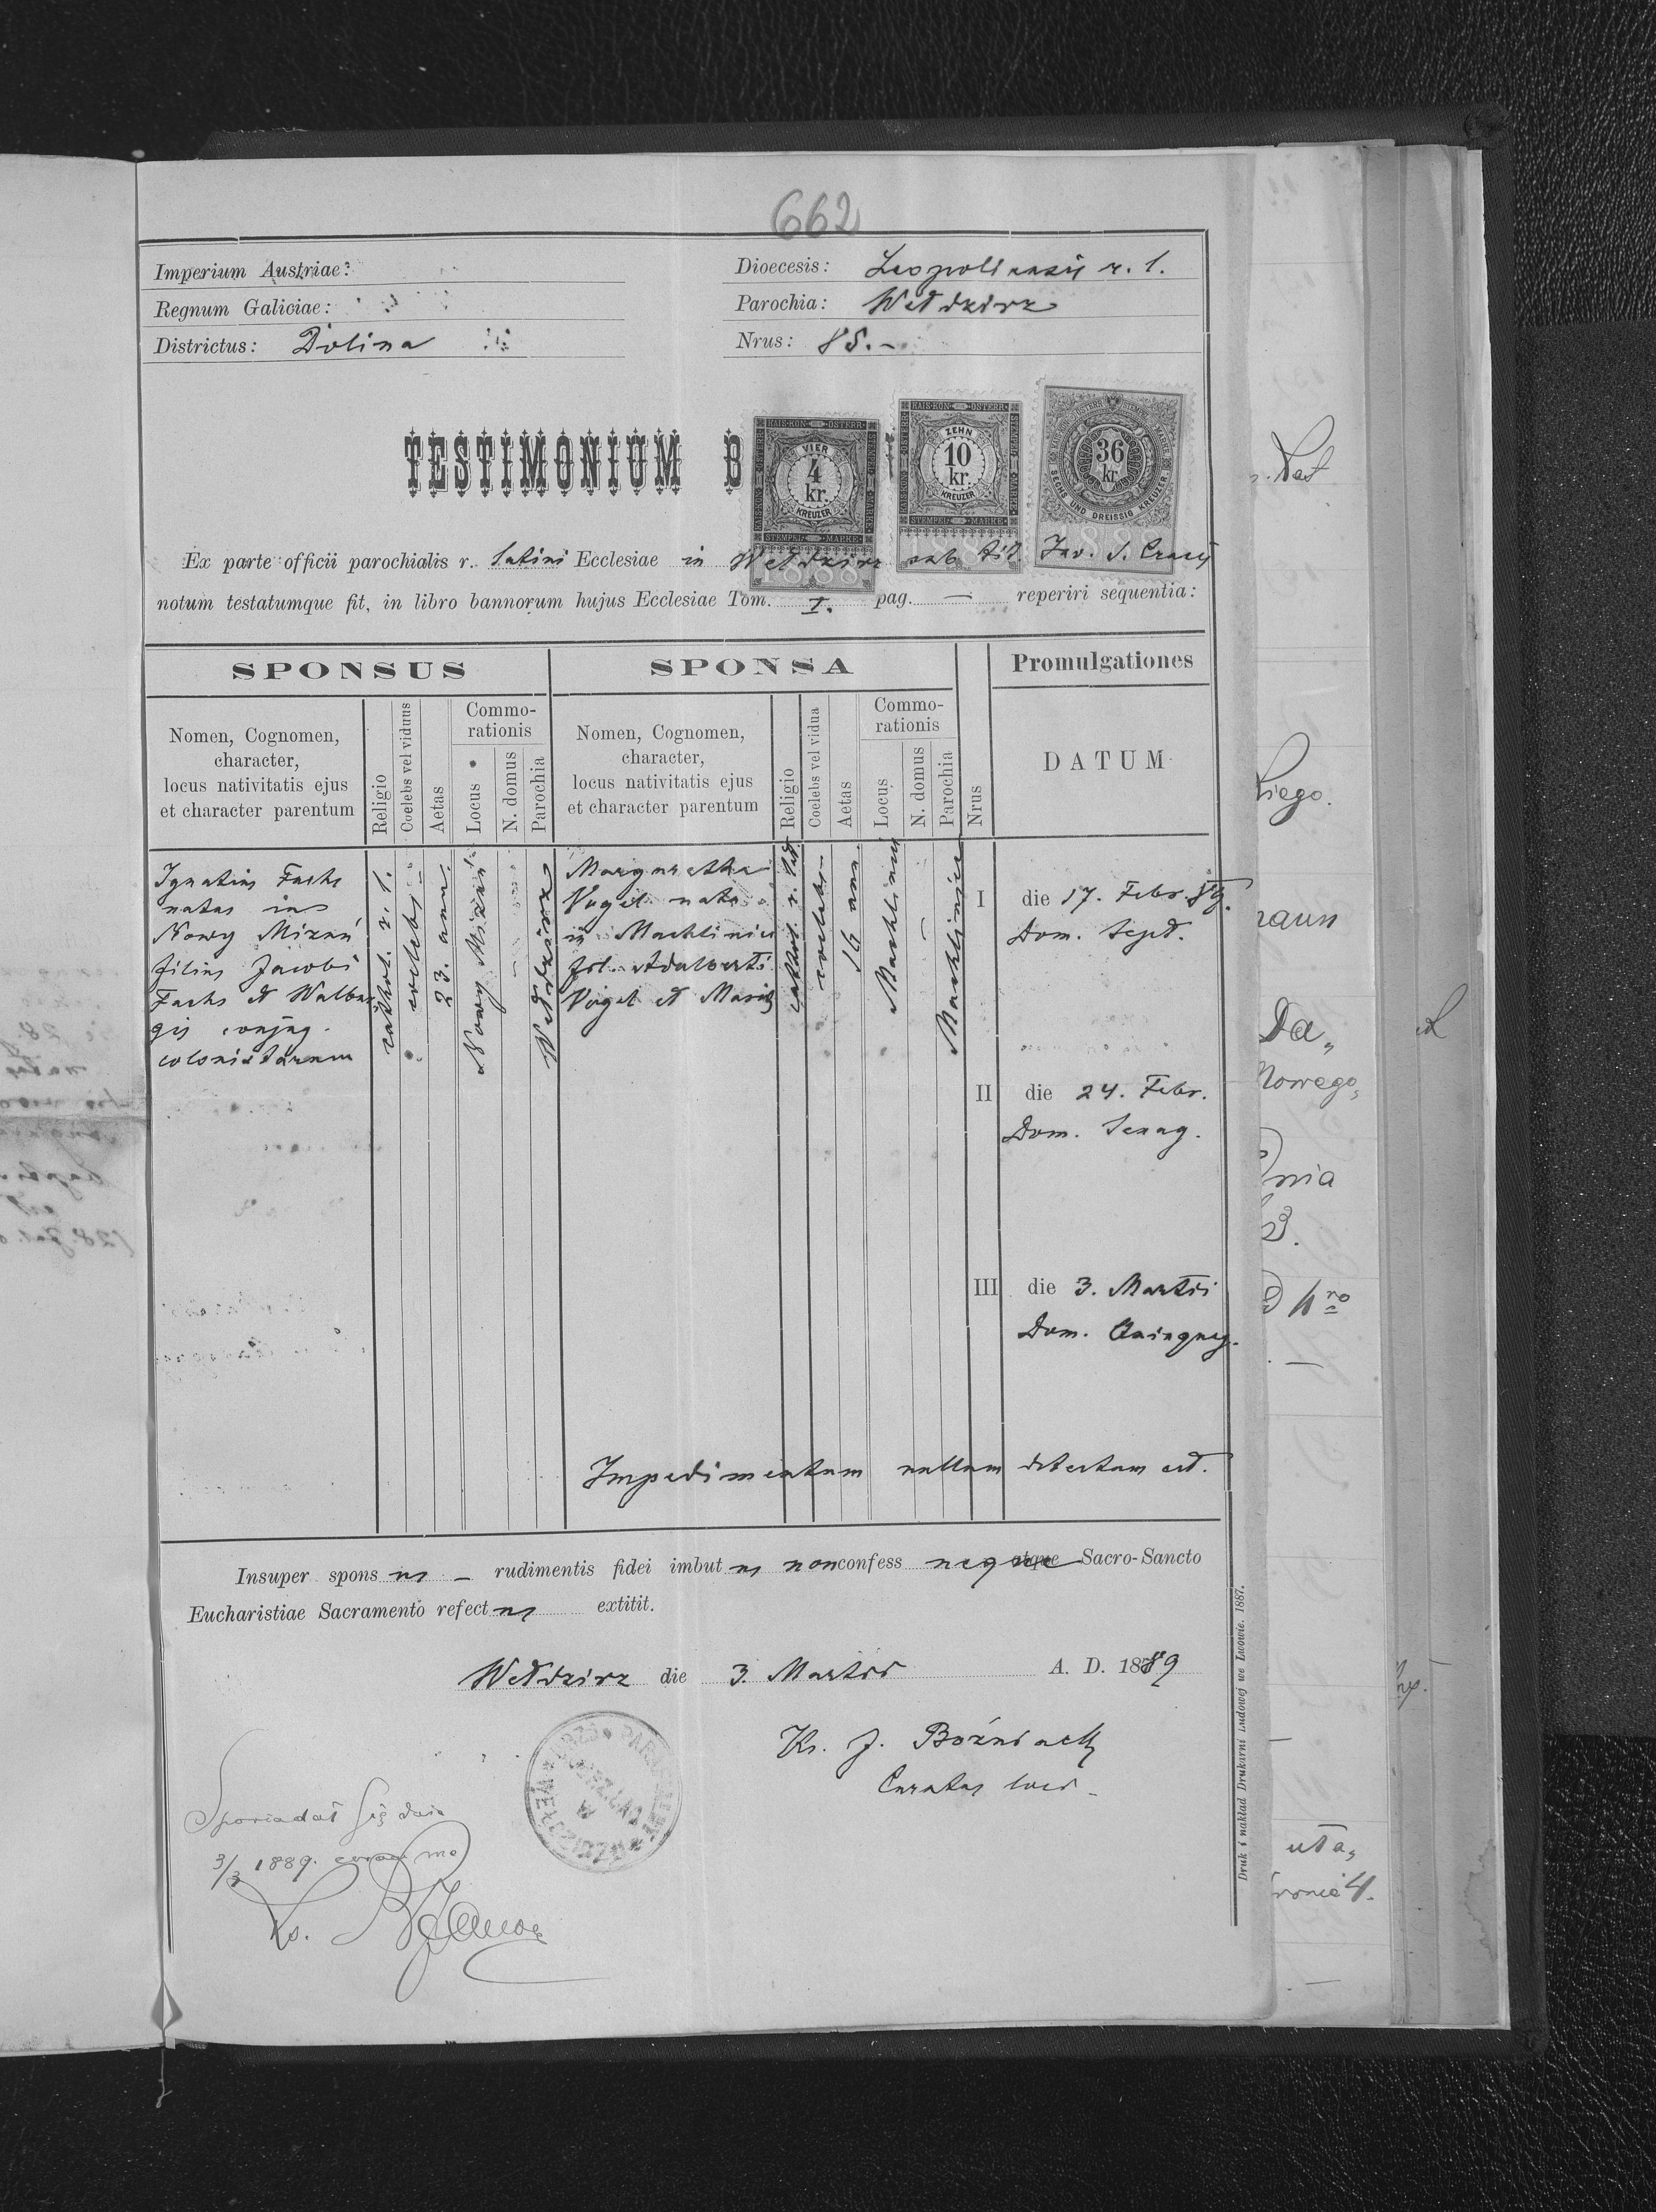 662
Imperium Austriae:
Dioecesis: Leopoliensis r. l.
Regnum Galiciae:
Parochia: Wełdzirz
Districtus: Dolina
Nrus: 85.-
TESTIMONIUM B
KAIS·KÖN· ÖSTERR·
VIER
4
kr.
KREUZER
STEMPEL MARKE
1888
KAIS·KÖN· ÖSTERR·
ZEHN
10
kr.
KREUZER
STEMPEL MARKE
36
kr.
SECHS UND DREISSIG KREUZER
Ex parte officii parochialis r. latini Ecclesiae in Wełdzirz sub tit. Inv. S. Crucis
notum testatumque fit, in libro bannorum hujus Ecclesiae Tom. I. pag. — reperiri sequentia:
SPONSUS
SPONSA
Promulgationes
Nomen, Cognomen,
character,
locus nativitatis ejus
et character parentum
Religio
Coelebs vel viduus
Aetas
Commo-
rationis
Locus
N. domus
Parochia
Nomen, Cognomen,
character,
locus nativitatis ejus
et character parentum
Religio
Coelebs vel vidua
Aetas
Commo-
rationis
Locus
N. domus
Parochia
Nrus
DATUM
Ignatius Fuchs
natus in
Nowy Mizuń
filius Jacobi
Fuchs et Walbur
gis conjug.
colonistarum
cathol. r. l.
coelebs -
23. ann.
Nowy Mizuń
Wełdzirz
Margaretha
Vogel nata
in Machliniec
fil. Adalberti
Vogel et Mariae
cathol. r. lat.
coelebs -
16 ann
Machliniec
Machliniec
I die 17. Febr. 89.
Dom. Sept.
II die 24. Febr.
Dom. Sexag.
III die 3. Martii
Dom. Quinquag.
Impedimentum nullum detectum est.
Insuper sponsus - rudimentis fidei imbutus non confess neque atque Sacro-Sancto
Eucharistiae Sacramento refectus extitit.
Wełdzirz die 3. Martii A. D. 1889
Ks. J.
Curatus loci
Spowiadał się dnia
3/3 1889. coram me
Ks.
Druk i nakład Drukarni Ludowej we Lwowie. 1887.